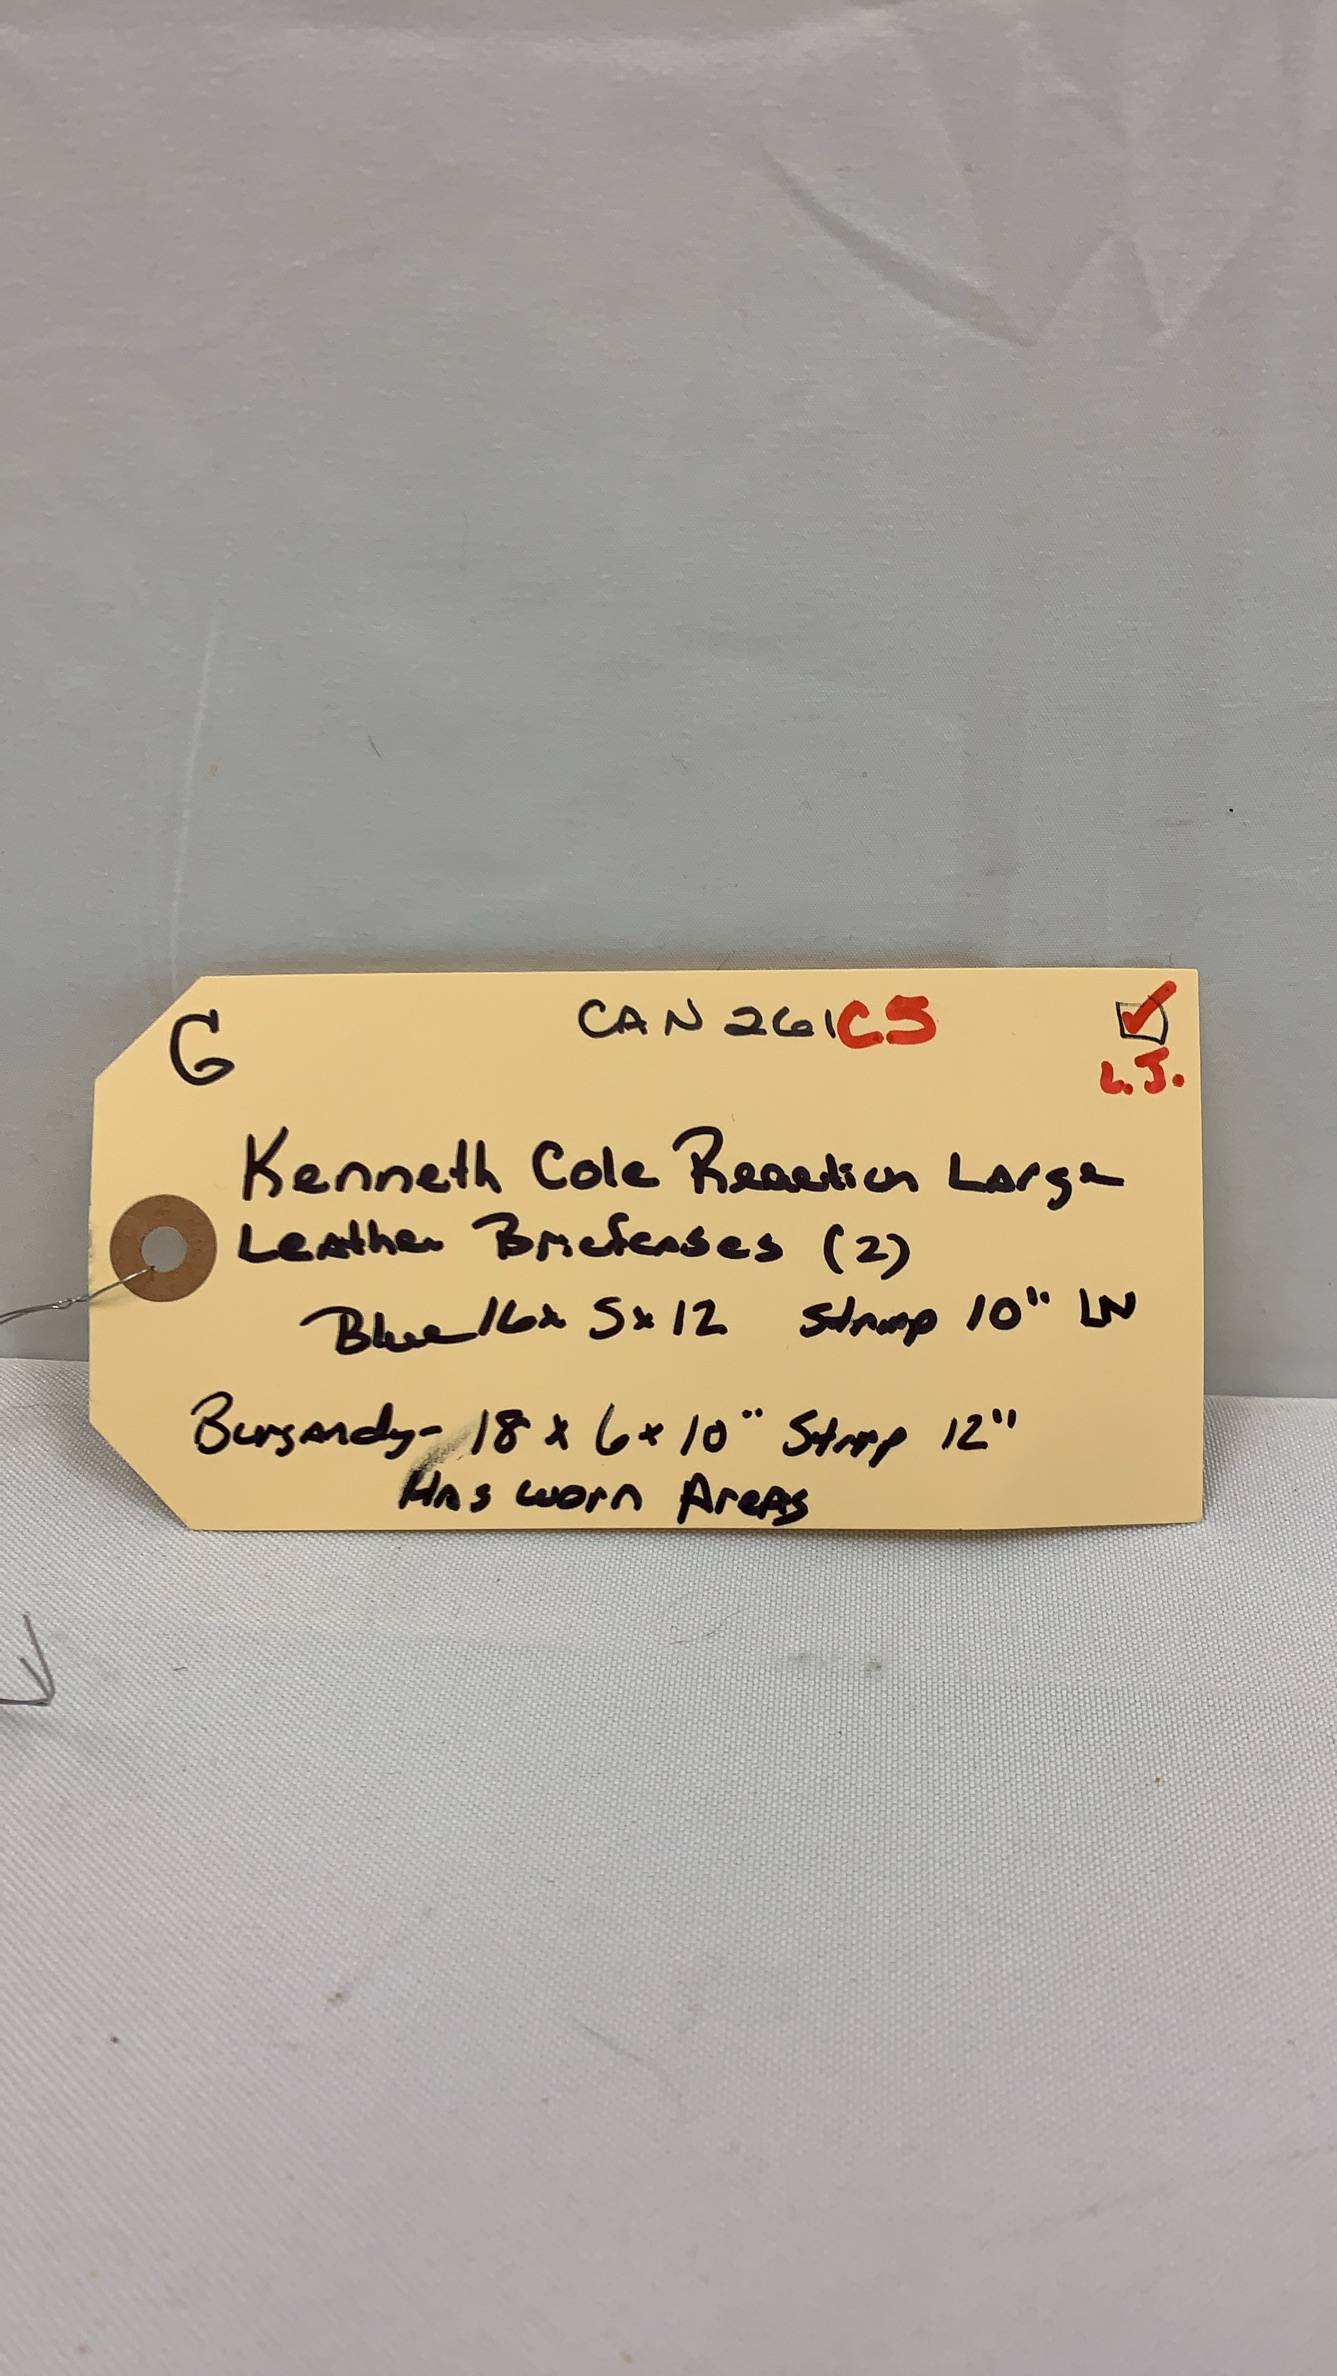 G
CAN 261CS
L.J.
Kenneth Cole Reaction Large
Leather Briefcases (2)
Blue 16x 5x12 Strap 10" LN
Burgandy- 18 x 6x10" Strap 12"
Has worn Areas